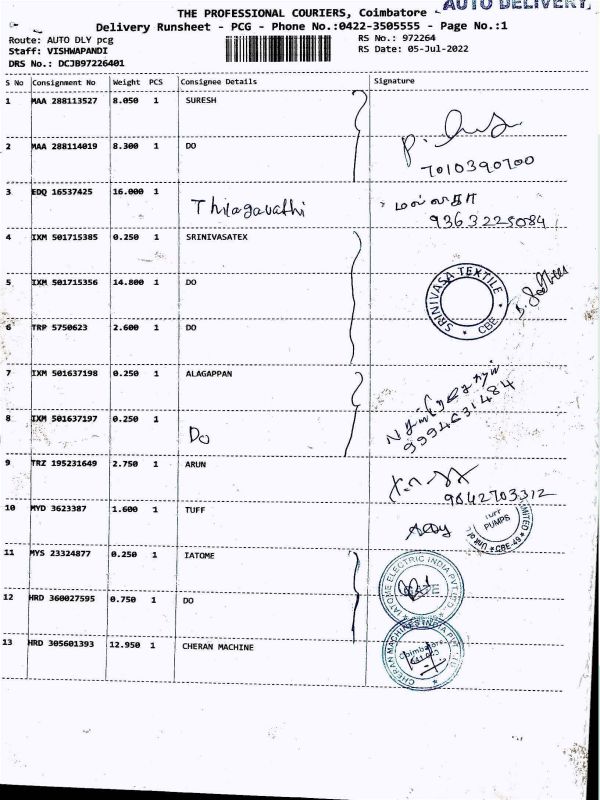 AUTO DELIVERY
THE PROFESSIONAL COURIERS, Coimbatore -
Delivery Runsheet - PCG - Phone No.:0422-3505555 - Page No.:1
Route: AUTO DLY pcg
RS No.: 972264
Staff: VISHWAPANDI
RS Date: 05-Jul-2022
DRS No.: DCJB97226401
S No Consignment No Weight PCS Consignee Details Signature
1 MAA 288113527 8.050 1 SURESH
2 MAA 288114019 8.300 1 DO
7010390700
3 EDQ 16537425 16.000 1 Thiagavathi
9363225084
4 IXM 501715385 0.250 1 SRINIVASATEX
5 IXM 501715356 14.800 1 DO
SRINIVASA TEXTILE
* CBE *
6 TRP 5750623 2.600 1 DO
7 IXM 501637198 0.250 1 ALAGAPPAN
8 IXM 501637197 0.250 1 Do
9994631484
9 TRZ 195231649 2.750 1 ARUN
9842703312
10 MYD 3623387 1.600 1 TUFF
TUFF
PUMPS
* CBE-49 *
11 MYS 23324877 0.250 1 IATOME
IATOME ELECTRIC INDIA PVT LTD
12 HRD 360027595 0.750 1 DO
13 HRD 305601393 12.950 1 CHERAN MACHINE
CHERAN MACHINES INDIA PVT LTD
Coimbatore